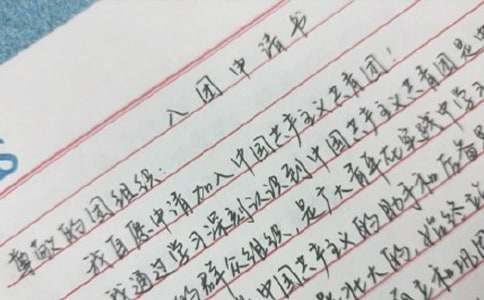 入团申请书
尊敬的团组织：
我自愿申请加入中国共产主义共青团！
我通过学习深刻认识到中国共产主义共青团是中
的群众组织，是广大青年在实践中学习
中国共产主义的助手和后备
壮大的，始终站